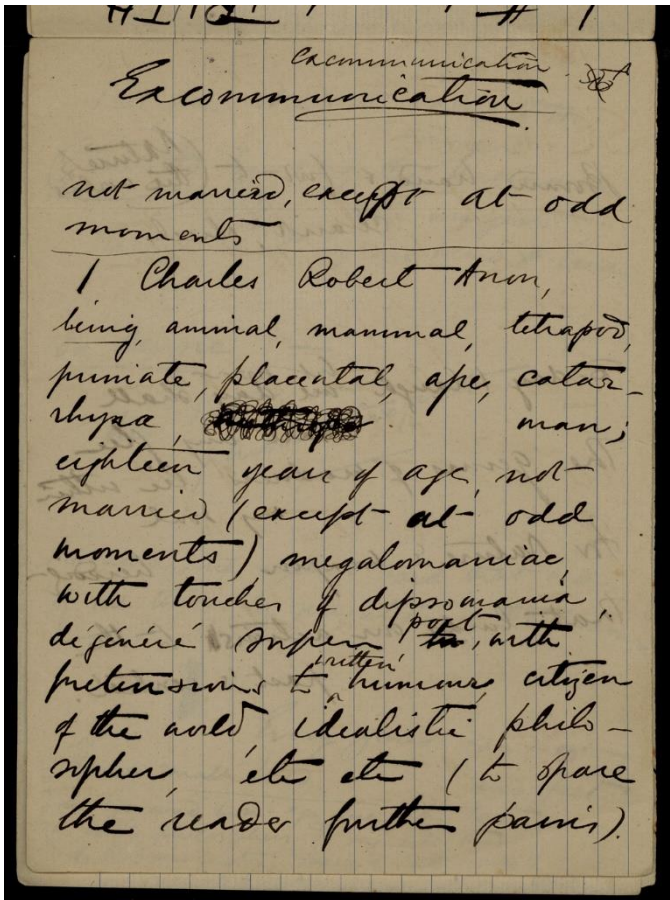 excommunication
Excommunication
not married, except at odd
moments
I Charles Robert Anon,
being, animal, mammal, tetrapod,
primate, placental, ape, catar-
rhyna, man;
eighteen years of age, not
married (except at odd
moments), megalomaniac,
with touches of dipsomania,
dégénéré supérieur, poet, with
pretensions to written humour, citizen
of the world, idealistic philo-
sopher, etc etc (to spare
the reader further pains).